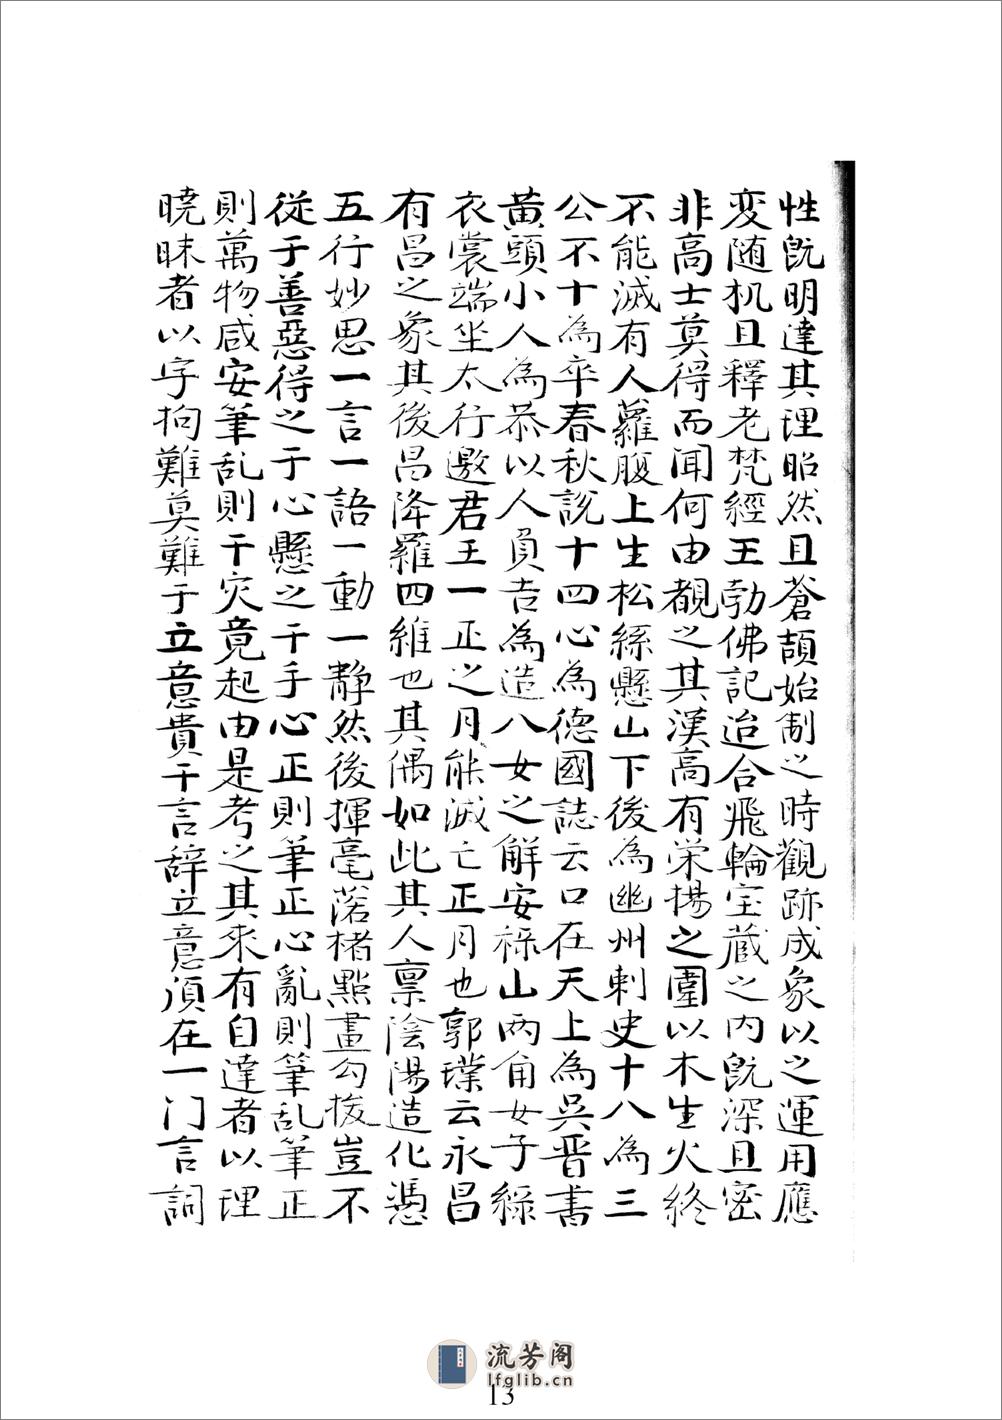 性既明達其理昭然且蒼頡始制之時觀跡成象以之運用應
変随机且釋老梵經王勃佛記迨合飛輪宝蔵之内既深且密
非高士莫得而闻何由覩之其漢高有栄揚之圍以木生火終
不能滅有人蘿腹上生松絲懸山下後為幽州刺史十八為三
公不十為卒春秋説十四心為德國誌云口在天上為吳晋書
黄頭小人為恭以人負吉為造八女之解安祿山两角女子綠
衣裳端坐太行邀君王一正之月能滅亡正月也郭璞云永昌
有昌之象其後昌降羅四維也其偶如此其人禀陰陽造化憑
五行妙思一言一語一動一静然後揮毫落楮點畫勾拨豈不
從于善惡得之于心懸之于手心正則筆正心亂則筆乱筆正
則萬物咸安筆乱則干灾竟起由是考之其來有自達者以理
暁昧者以字拘難莫難于立意貴于言辞立意須在一门言詞
流芳阁
lfglib.cn
13